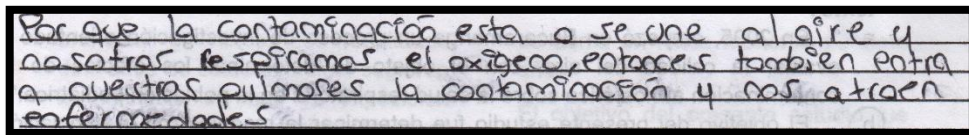 Por que la contaminación esta o se une al aire y
nosotros respiramos el oxígeno, entonces tambien entra
a nuestros pulmones la contaminación y nos atraen
enfermedades